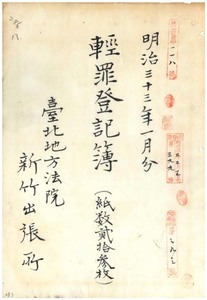 明治三十三年一月分
輕罪登記簿
(紙数貳拾參枚)
臺北地方法院
新竹出張所